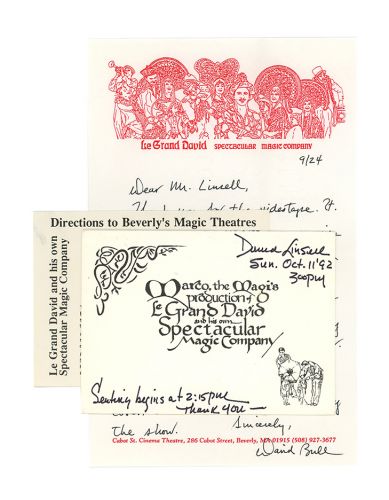 Le Grand David SPECTACULAR MAGIC COMPANY
9/24
Dear Mr. Linsell,
for the videotape. It
Directions to Beverly's Magic Theatres
Le Grand David and his own
Spectacular Magic Company
David Linsell
Sun. Oct. 11 '92
3:00pm
Marco, the Magi's
production of
Le Grand David
and his own
Spectacular
Magic Company
Seating begins at 2:15pm
Thank you —
the show. Sincerely,
Cabot St. Cinema Theatre, 286 Cabot Street, Beverly, MA 01915 (508) 927-3677
David Bull